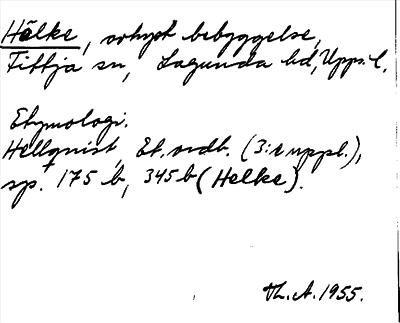 Hälke, utnyst bebyggelse,
Fittja sn, Lagunda hd, Upps. l.
Etymologi.
Hellquist, Et. ordb. (3:e uppl.),
sp. 175 b, 345 b (Helke).
Th. A. 1955.